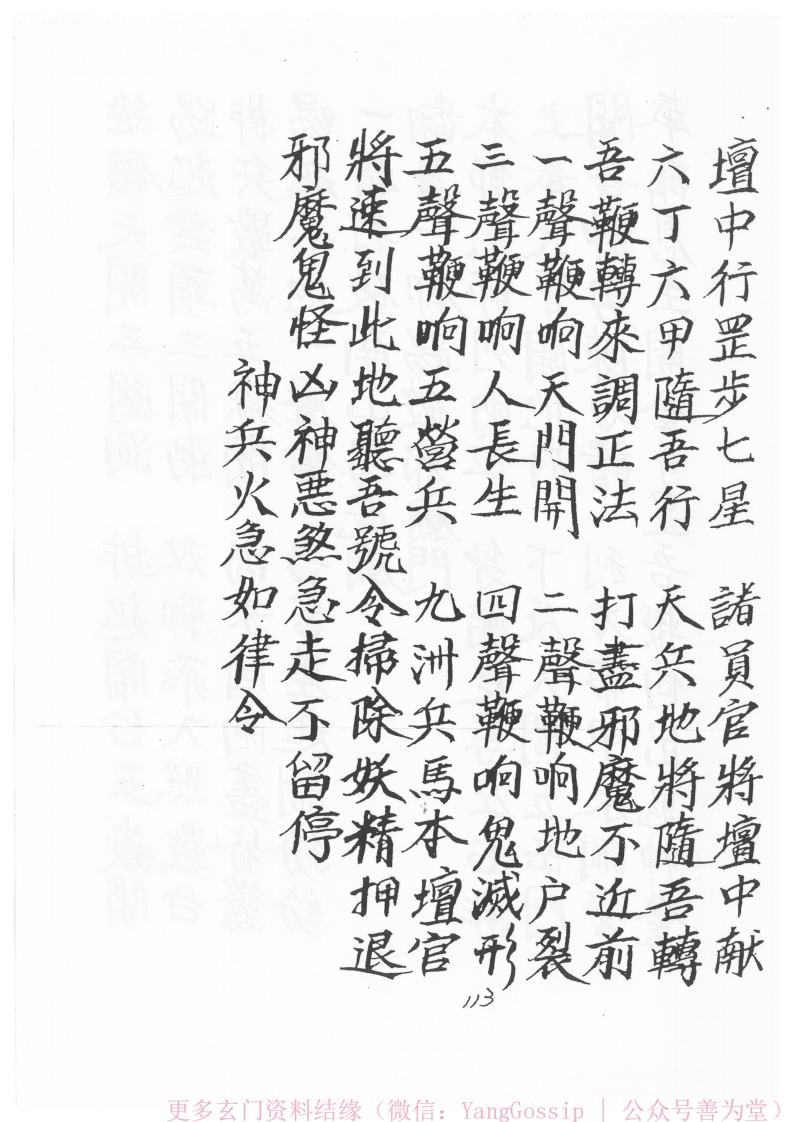 壇中行罡步七星　諸員官將壇中献
六丁六甲隨吾行　天兵地將隨吾轉
吾鞭轉來調正法　打盡邪魔不近前
一聲鞭响天門開　二聲鞭响地户裂
三聲鞭响人長生　四聲鞭响鬼滅形
五聲鞭响五營兵　九洲兵馬本壇官
將速到此地聽吾號令掃除妖精押退
邪魔鬼怪凶神悪煞急走不留停
神兵火急如律令
113
更多玄门资料结缘（微信：YangGossip | 公众号善为堂）